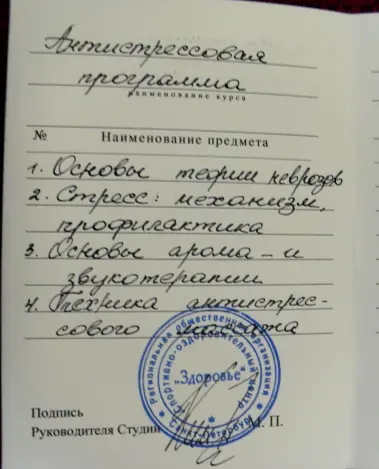 Антистрессовая
программа
наименование курса
№ Наименование предмета
1. Основы теории неврозов
2. Стресс: механизм,
профилактика
3. Основы арома – и
звукотерапии
4. Техника антистрес-
сового массажа
Региональная общественная организация
Спортивно-оздоровительный центр
"Здоровье"
Санкт-Петербург
Подпись
Руководителя Студии
М. П.